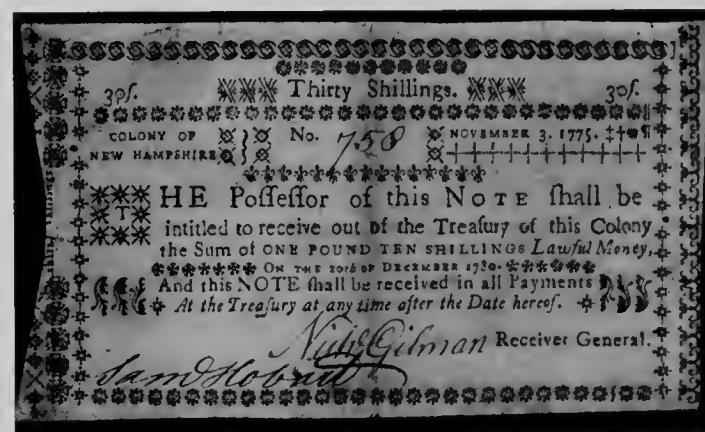 30ſ. Thirty Shillings. 30ſ.
COLONY OF No. 758 NOVEMBER 3. 1775. ‡†*¶
NEW HAMPSHIRE
THE Poſſeſſor of this NOTE ſhall be
intitled to receive out of the Treaſury of this Colony
the Sum of ONE POUND TEN SHILLINGS Lawful Money,
ON THE 20th OF DECEMBER 1780.
And this NOTE ſhall be received in all Payments
At the Treaſury at any time after the Date hereof.
Gilman Receiver General.
Sam Hobart